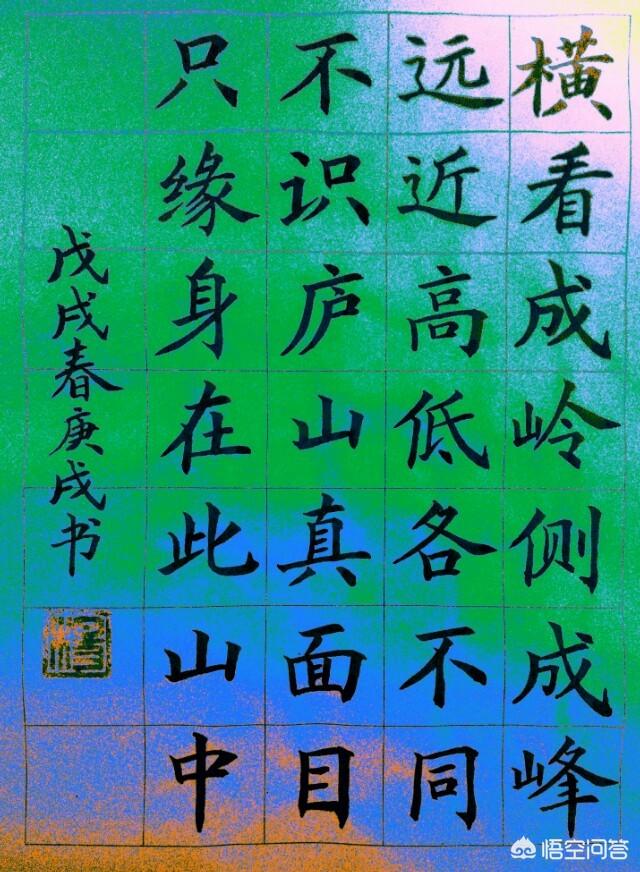 横看成岭侧成峰
远近高低各不同
不识庐山真面目
只缘身在此山中
戊戌春庚戌书
悟空问答